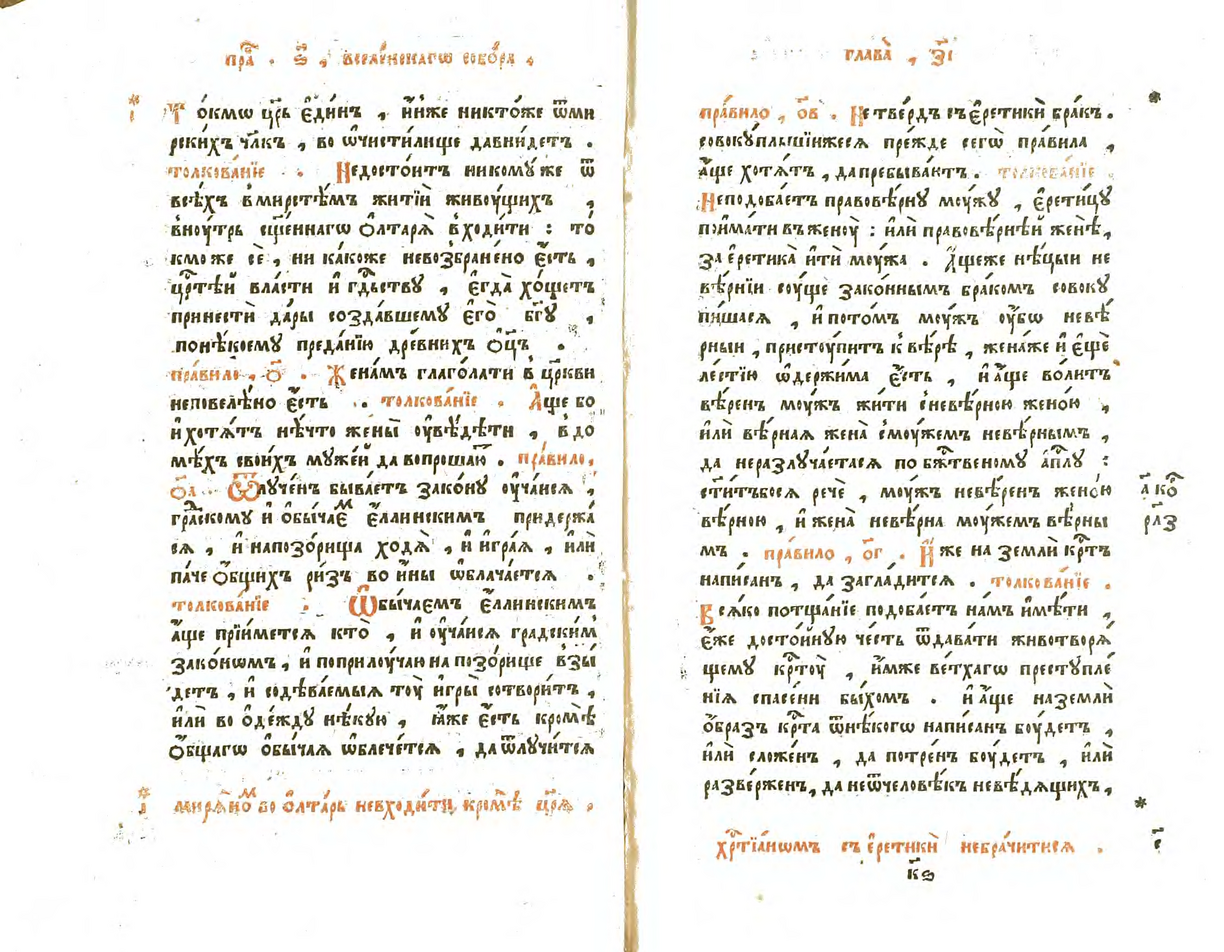 пра́⷇ . ѕ҃ , вселе́нскагѡ собо́ра ,
То́кмѡ цр҃ь є҆ди́нъ , и҆ и҆́же никто́же ѿ ми
рски́хъ чл҃къ , во ѡ҆чисти́лище да вни́детъ .
толкова́нїе . Недосто́итъ никому́ же ѿ
всѣ́хъ в мирстѣ́мъ житїи̑ живоу́щихъ ,
вноу́трь сщ҃е́ннагѡ ѻ҆лтарѧ̀ входи́ти : то́
кмо же сѐ , ни ка́коже невозбране́но є҆́сть ,
црⷭ҇тѣй вла́сти и҆ гдⷭ҇ьству , є҆гда̀ хо́щетъ
принестѝ да́ры созда́вшему є҆го̀ бг҃у ,
по нѣ́коему преда́нїю дре́внихъ ѻ҆ц҃ъ .
пра́вило , о҃ . Жена́мъ глаго́лати в цр҃кви
неповелѣ́но є҆́сть . толкова́нїе . А҆́ще бо
и҆ хотѧ́тъ нѣ́что жены̀ оу҆вѣ́дѣти , в до
мѣ́хъ свои́хъ муже́й да вопроша́юⷮ . пра́вило ,
о҃а . Ѿлуче́нъ быва́етъ зако́ну оу҆ча́исѧ ,
гра́скому и҆ ѻ҆быча́еⷨ є҆́ллинскимъ придержа́
сѧ , и҆ на позо́рища ходѧ̀ , и҆ и҆гра́ѧ , и҆лѝ
па́че ѻ҆́бщихъ ри́зъ во и҆́ны ѡ҆блача́етсѧ .
толкова́нїе . Ѡ҆бы́чаемъ є҆́ллинскимъ
а҆́ще прїи́метсѧ кто̀ , и҆ оу҆ча́исѧ гра́дскимъ
зако́нѡмъ , и҆ поприлоуча́ю на позо́рище взы́
детъ , и҆ содѣва́емыѧ тоу̀ и҆гры̀ сотвори́тъ ,
и҆лѝ во ѻ҆де́жду нѣ́кую , ꙗ҆́же є҆́сть кромѣ̀
ѻ҆́бщагѡ ѻ҆бы́чаѧ ѡ҆блече́тсѧ , да ѿлучи́тсѧ
мирѧ́ноⷨ во ѻ҆лта́рь невходи́ти , кромѣ̀ цр҃ѧ̀ .
глава̀ , з҃і
пра́вило , о҃в . Не тве́рдъ съ є҆ретикѝ бра́къ .
совоку́пльшїижесѧ пре́жде сегѡ̀ пра́вила ,
а҆́ще хотѧ́тъ , да пребыва́ютъ . толкова́нїе .
Неподоба́етъ правовѣ́рну моу́жу , є҆рети́цу
пои҆ма́ти въ женоу̀ : и҆лѝ правовѣ́рнѣй женѣ̀ ,
за є҆ретика̀ и҆тѝ моу́жа . А҆́щеже нѣ́цыи не
вѣ́рнїи соу́ще зако́ннымъ бра́комъ совоку
пи́шасѧ , и҆ пото́мъ моу́жъ оу҆́бѡ невѣ́
рныи , пристоу́питъ к вѣ́рѣ , жена́же и҆ є҆щѐ
ле́стїю ѡ҆держи́ма є҆́сть , и҆ а҆́ще во́литъ
вѣ́ренъ моу́жъ жи́ти с невѣ́рною жено́ю ,
и҆лѝ вѣ́рнаѧ жена̀ с моу́жемъ невѣ́рнымъ ,
да неразлуча́етасѧ по бж҃тве́ному а҆пⷭ҇лу :
ст҃и́тъбосѧ речѐ , моу́жъ невѣ́ренъ жено́ю
вѣ́рною , и҆ жена̀ невѣ́рна моу́жемъ вѣ́рны
мъ . пра́вило , о҃г . И҆́же на землѝ крⷭ҇тъ
напи́санъ , да загла́дитсѧ . толкова́нїе .
Всѧ́ко потща́нїе подоба́етъ на́мъ и҆мѣ́ти ,
є҆́же досто́йную че́сть ѿдава́ти животворѧ́
щему крⷭ҇тоу̀ , и҆́мже ве́тхагѡ преступле́
нїѧ спасе́ни бы́хомъ . и҆ а҆́ще на землѝ
ѻ҆́бразъ крⷭ҇та ѿ нѣ́когѡ напи́санъ боу́детъ ,
и҆лѝ сложе́нъ , да поте́рнъ боу́детъ , и҆лѝ
разве́рженъ , да не ѿ человѣ́къ невѣ́дѧщихъ ,
а҃ коⷬ
р҃л҃з
хрⷭ҇тїа́нѡмъ съ є҆ретикѝ небра́читисѧ .
к҃ѕ